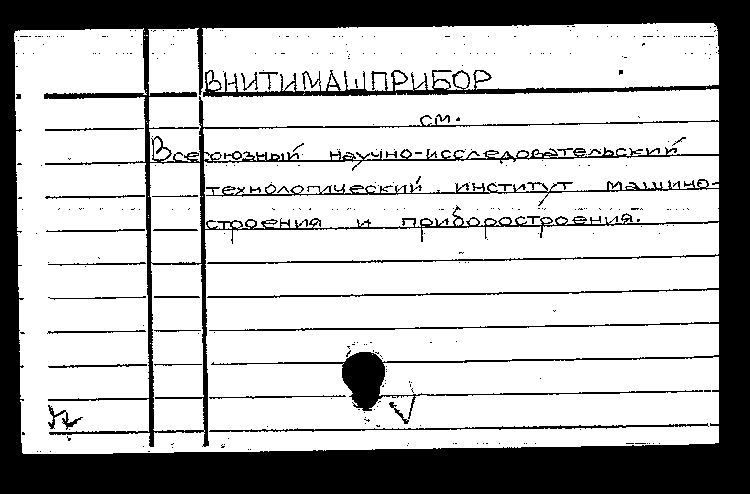 ВНИТИМАШПРИБОР
см.
Всесоюзный научно-исследовательский
технологический институт машино-
строения и приборостроения.